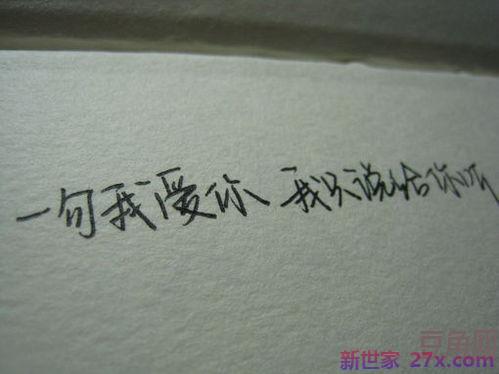 一句我爱你 我只说给你听
新世家 27x.com